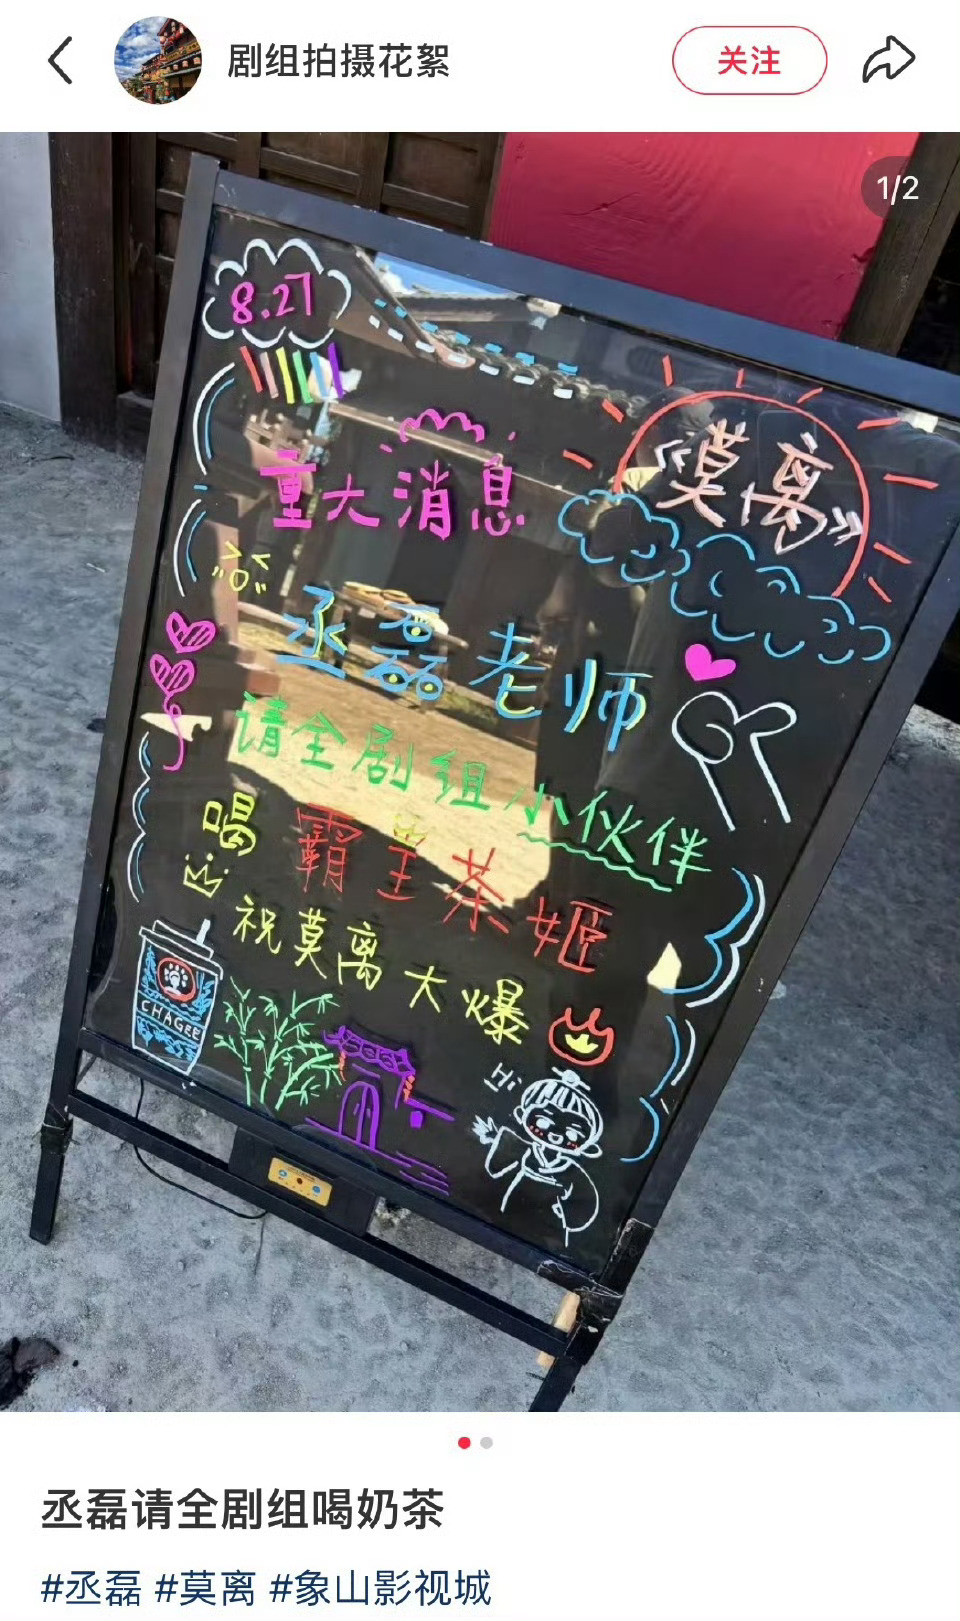 剧组拍摄花絮
关注
1/2
8.27
重大消息
《莫离》
丞磊老师
请全剧组小伙伴
喝霸王茶姬
祝莫离大爆
CHAGEE
Hi
丞磊请全剧组喝奶茶
#丞磊 #莫离 #象山影视城